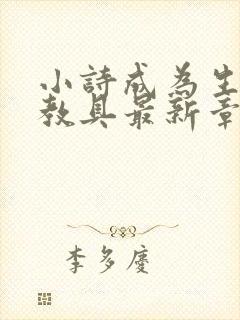 小詩成為生
教具最新章
李多慶